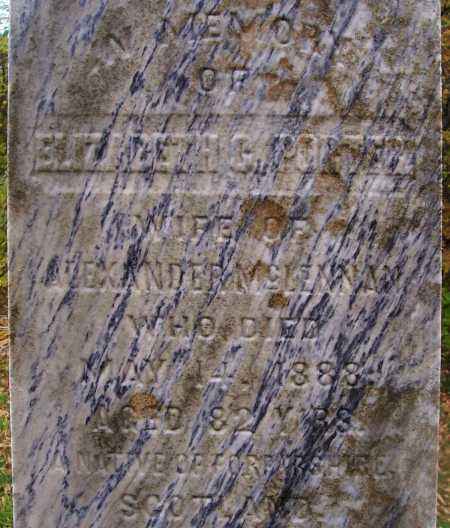 MEMORY
OF
ELIZABETH C. PORTER
WIFE OF
ALEXANDER McLENNAN
WHO DIED
MAY 14, 1888
AGED 82 Y'RS.
A NATIVE OF FORFARSHIRE,
SCOTLAND